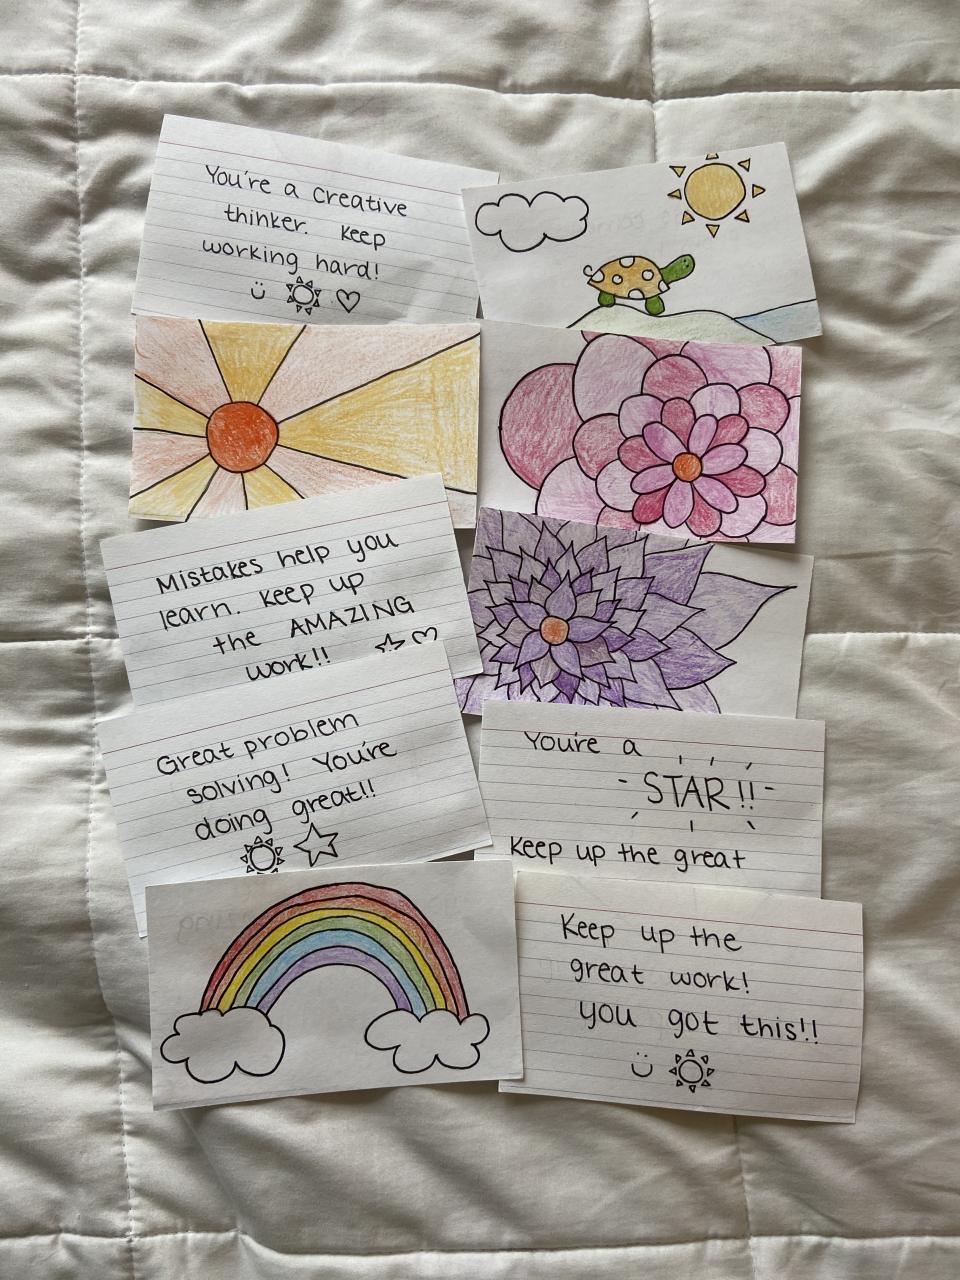 You're a creative
thinker. Keep
working hard!
Mistakes help you
learn. Keep up
the AMAZING
work!!
Great problem
solving! You're
doing great!!
You're a
STAR!!
Keep up the great
Keep up the
great work!
you got this!!